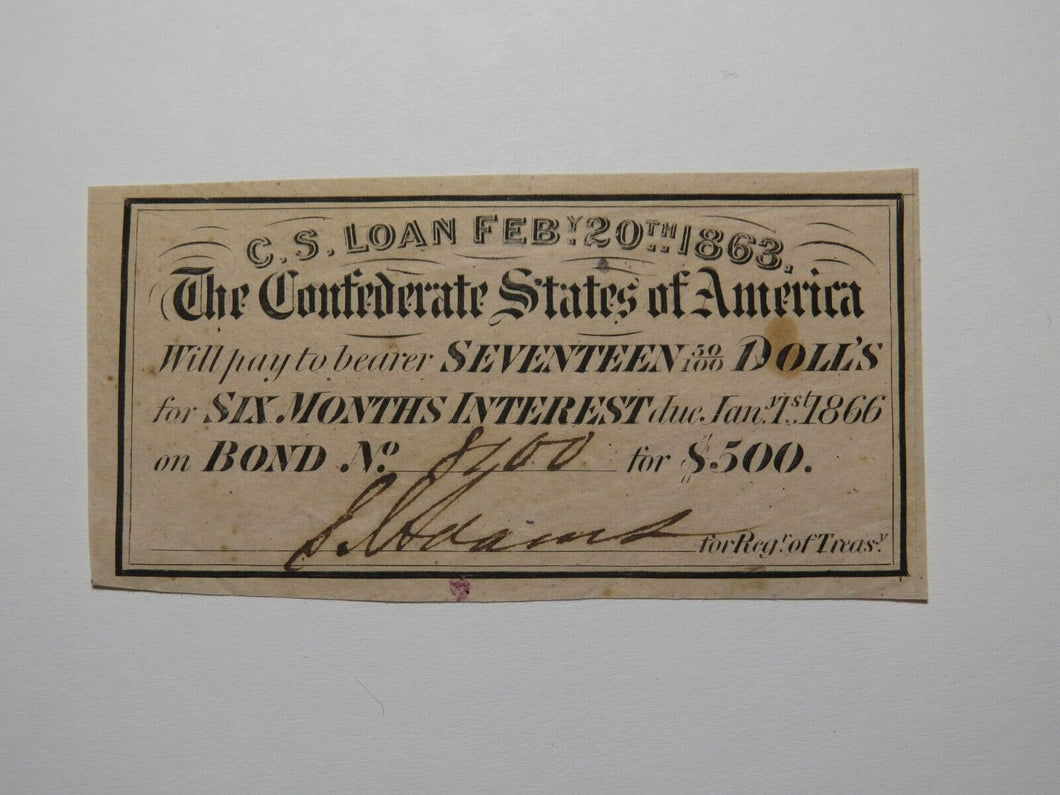 C.S. LOAN FEBY. 20TH. 1863.
The Confederate States of America
Will pay to bearer SEVENTEEN 50/100 DOLL'S
for SIX MONTHS INTEREST due Jany. 1st. 1866
on BOND No. 8700 for $500.
Adams for Regr. of Treasy.